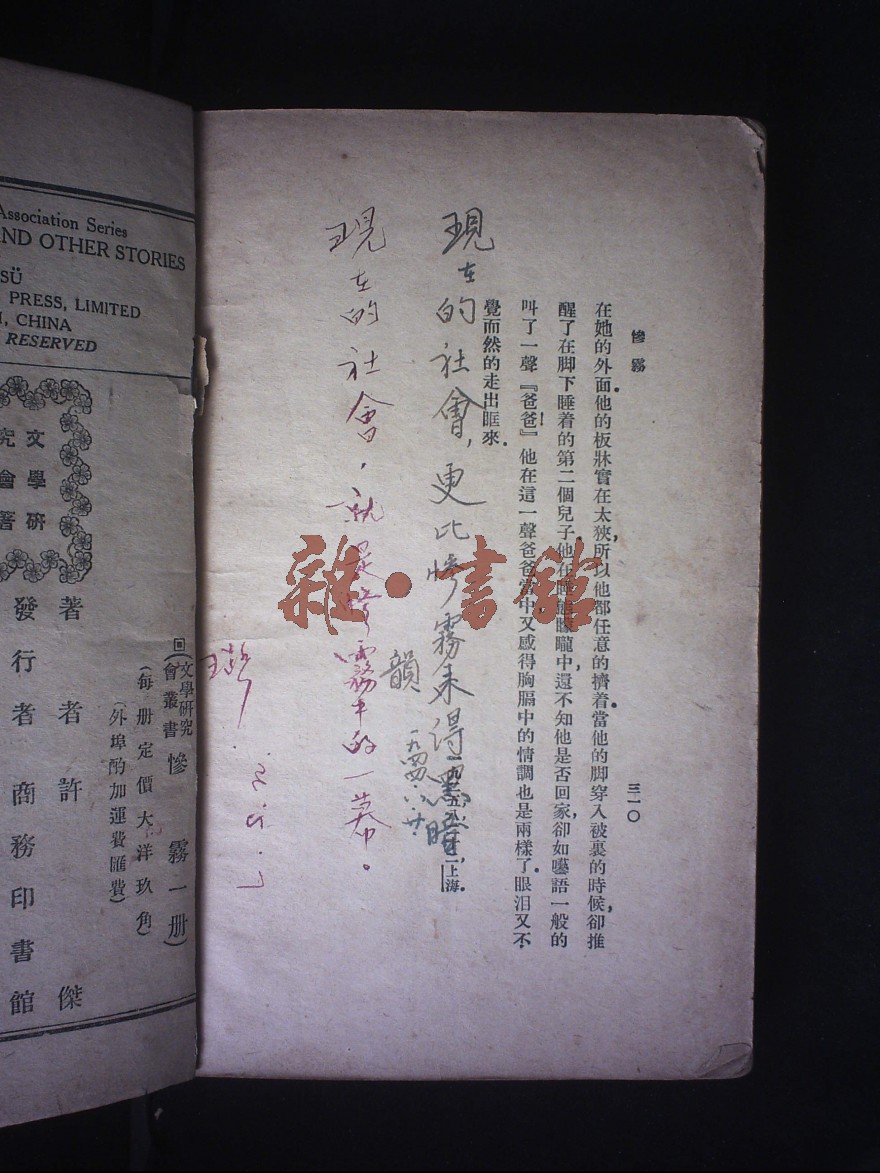 慘霧
三一〇
在她的外面他的板牀實在太狹,所以他都任意的擠着當他的脚穿入被裏的時候,卻推
醒了在脚下睡着的第二個兒子他在睡態矇矓中,還不知他是否回家,卻如囈語一般的
叫了一聲『爸爸!』他在這一聲爸爸當中,又感得胸膈中的情調也是兩樣了.眼泪又不
覺而然的走出眶來.
上海.
現在的社會,更比慘霧來得黑暗
韻
一九四四.八.廿.
現在的社會,就是慘霧中的一幕。
雜·書館
Association Series
AND OTHER STORIES
SÜ
PRESS, LIMITED
, CHINA
RESERVED
文學研
究會著
回文學研究會叢書慘霧一册)
(每册定價大洋玖角)
(外埠酌加運費匯費)
著者許傑
發行者商務印書館